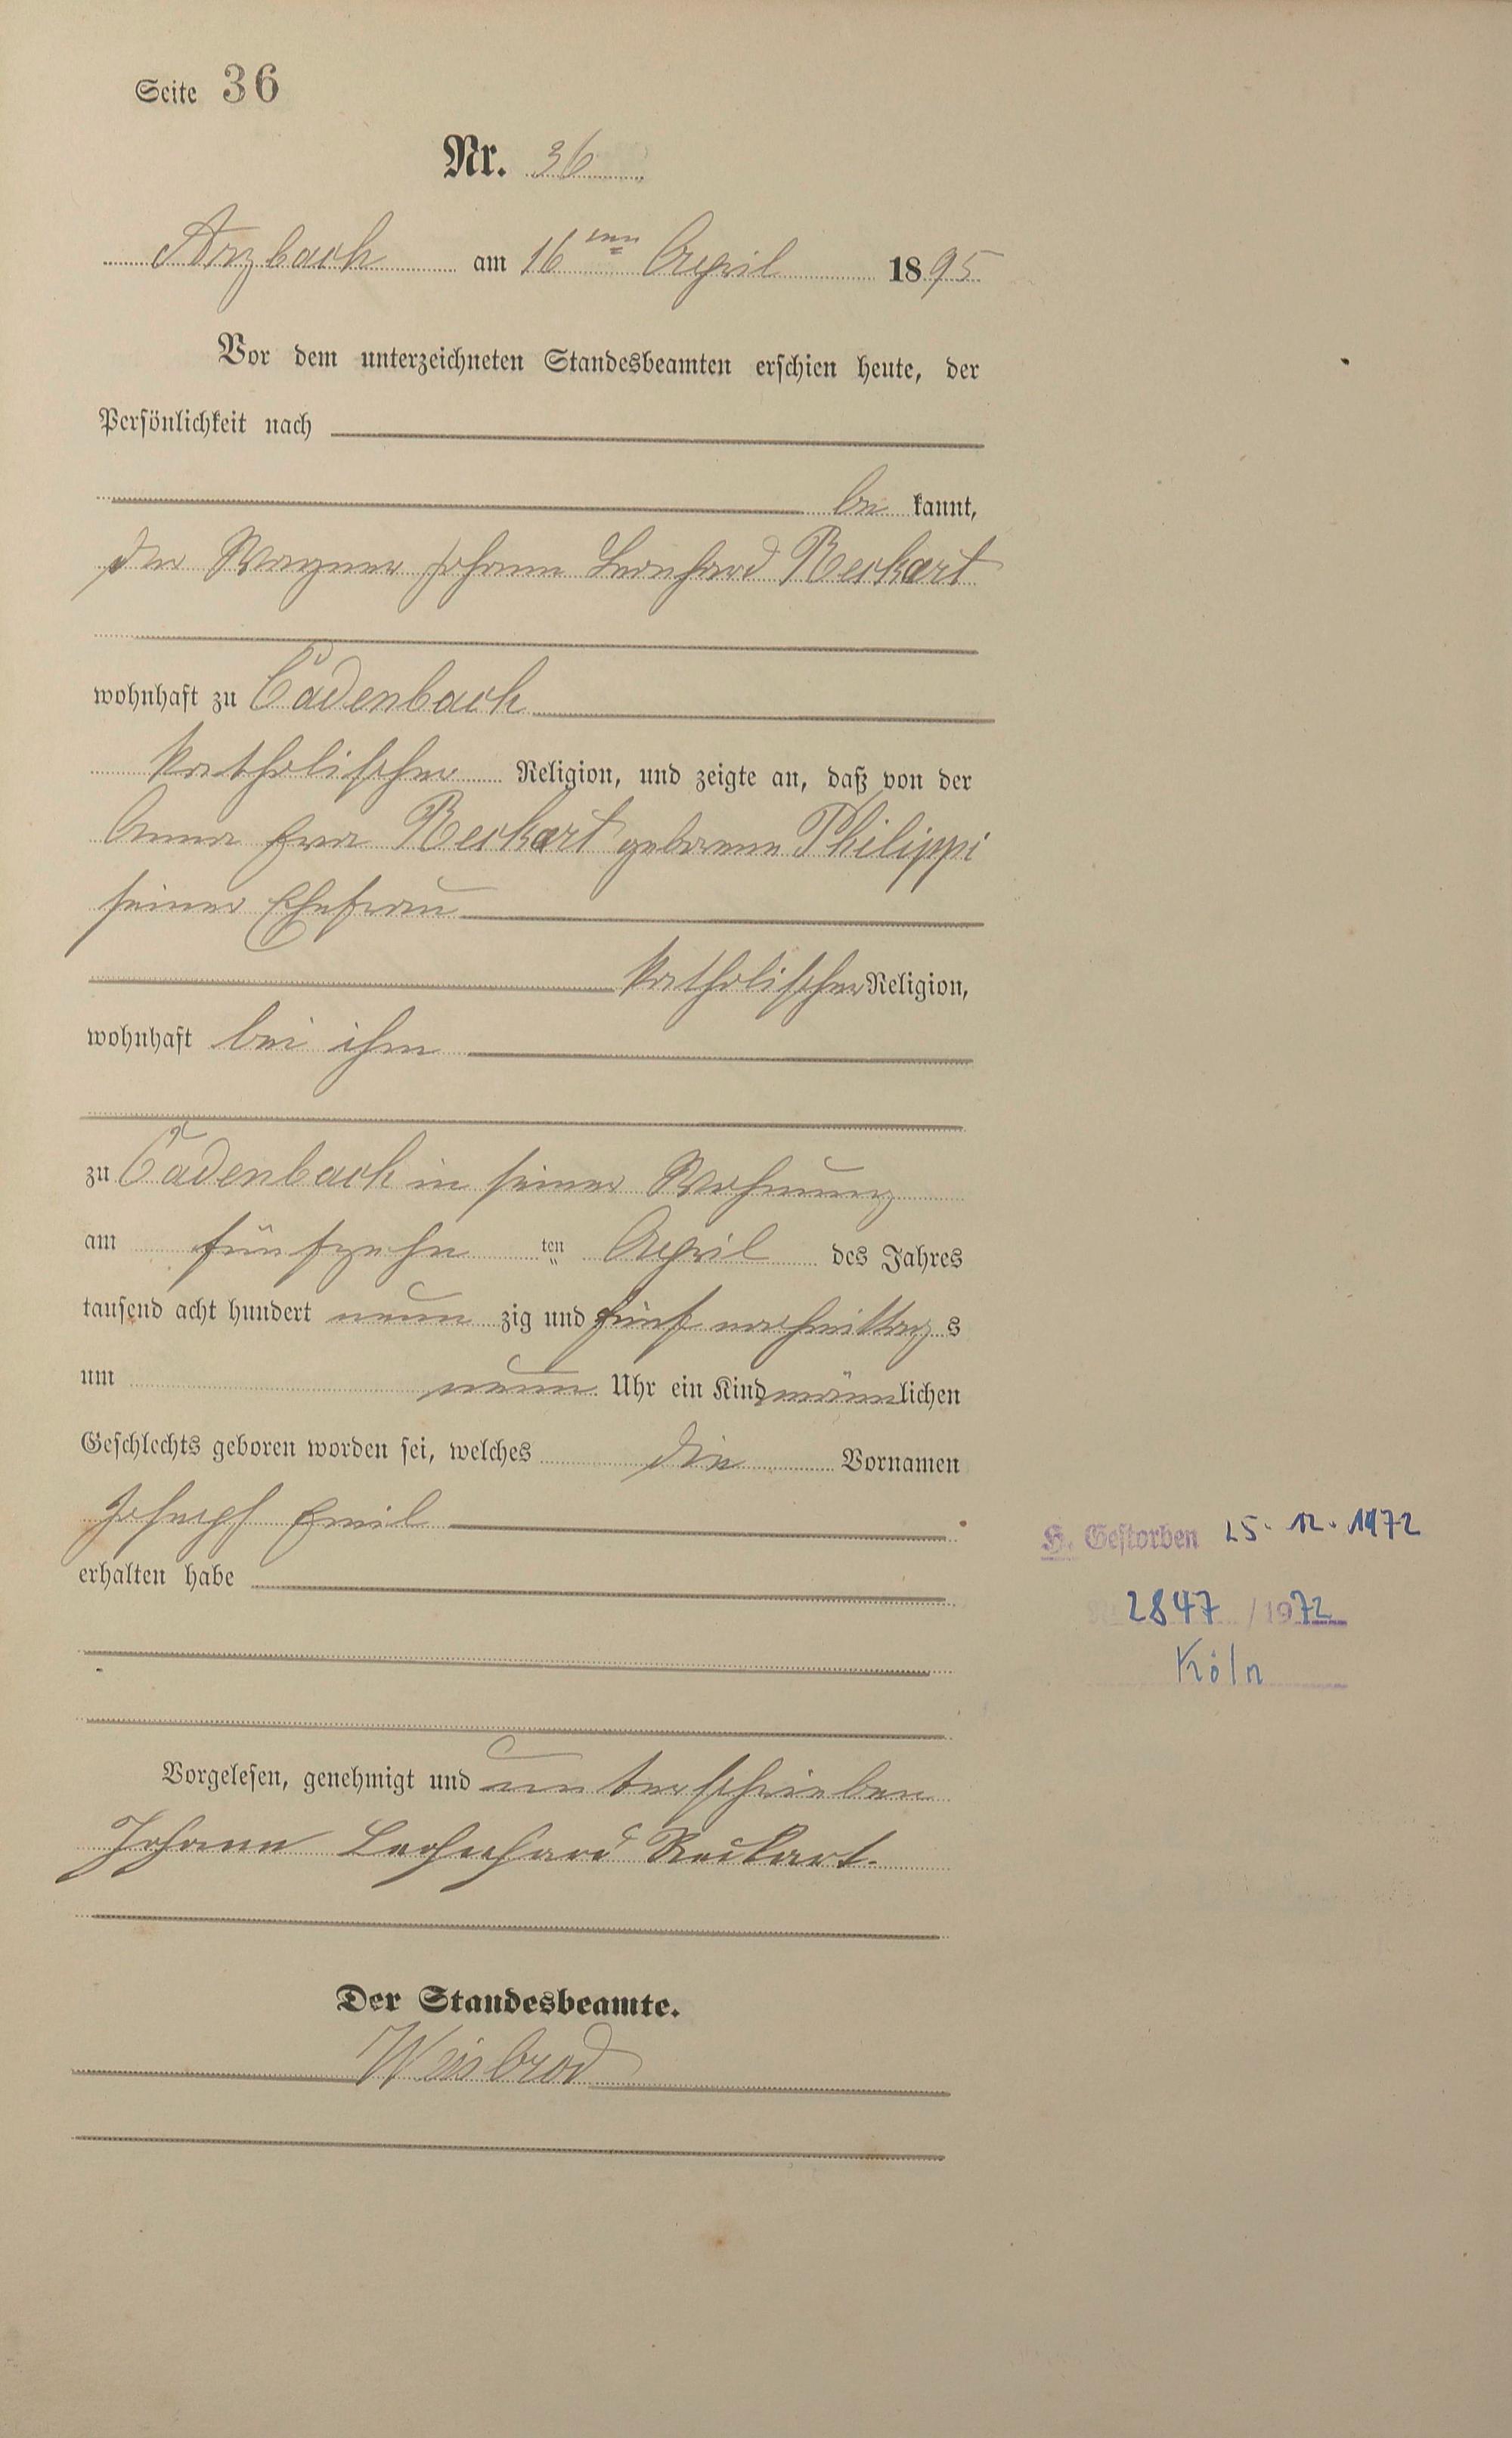 Seite 36
Nr. 36
Arzbach am 16ten April 1895
Vor dem unterzeichneten Standesbeamten erschien heute, der
Persönlichkeit nach
be kannt,
der Wagner Johann Leonhard Reckart
wohnhaft zu Cadenbach
katholischer Religion, und zeigte an, daß von der
Anna Eva Reckart geborene Philippi
seiner Ehefrau
katholischer Religion,
wohnhaft bei ihm
zu Cadenbach in seiner Wohnung
am fünfzehn ten April des Jahres
tausend acht hundert neun zig und fünf nachmittags
um neun Uhr ein Kind männlichen
Geschlechts geboren worden sei, welches die Vornamen
Joseph Emil
erhalten habe
H. Gestorben 25. 12. 1972
2847 / 1972
Köln
Vorgelesen, genehmigt und unterschrieben
Johann Leohnhard Reckart.
Der Standesbeamte.
Weisbrod